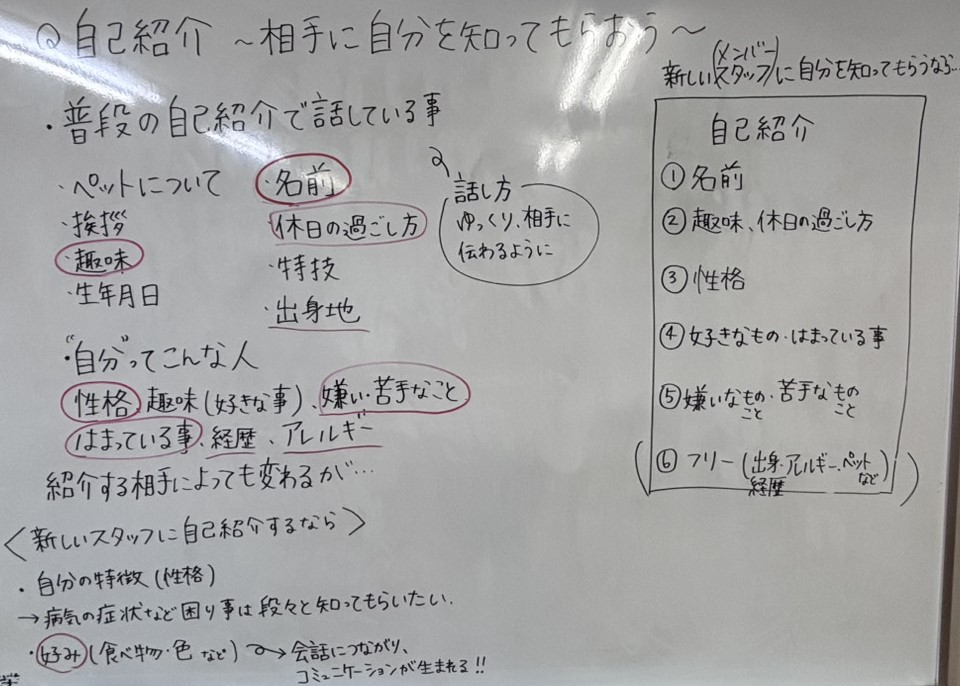 自己紹介 ~相手に自分を知ってもらおう~
・普段の自己紹介で話している事
・ペットについて
・挨拶
・趣味
・生年月日
・名前
休日の過ごし方
・特技
・出身地
話し方
ゆっくり、相手に
伝わるように
・"自分"ってこんな人
性格、趣味(好きな事)、嫌い・苦手なこと
はまっている事、経歴、アレルギー
紹介する相手によっても変わるが…
<新しいスタッフに自己紹介するなら>
・自分の特徴(性格)
→病気の症状など困り事は段々と知ってもらいたい.
・好み(食べ物・色 など) 会話につながり、
コミュニケーションが生まれる!!
(メンバー)
新しいスタッフに自分を知ってもらうなら…
自己紹介
①名前
②趣味、休日の過ごし方
③性格
④好きなもの・はまっている事
⑤嫌いなもの・苦手なもの
こと こと
(⑥フリー(出身・アレルギー・ペット
経歴 など))